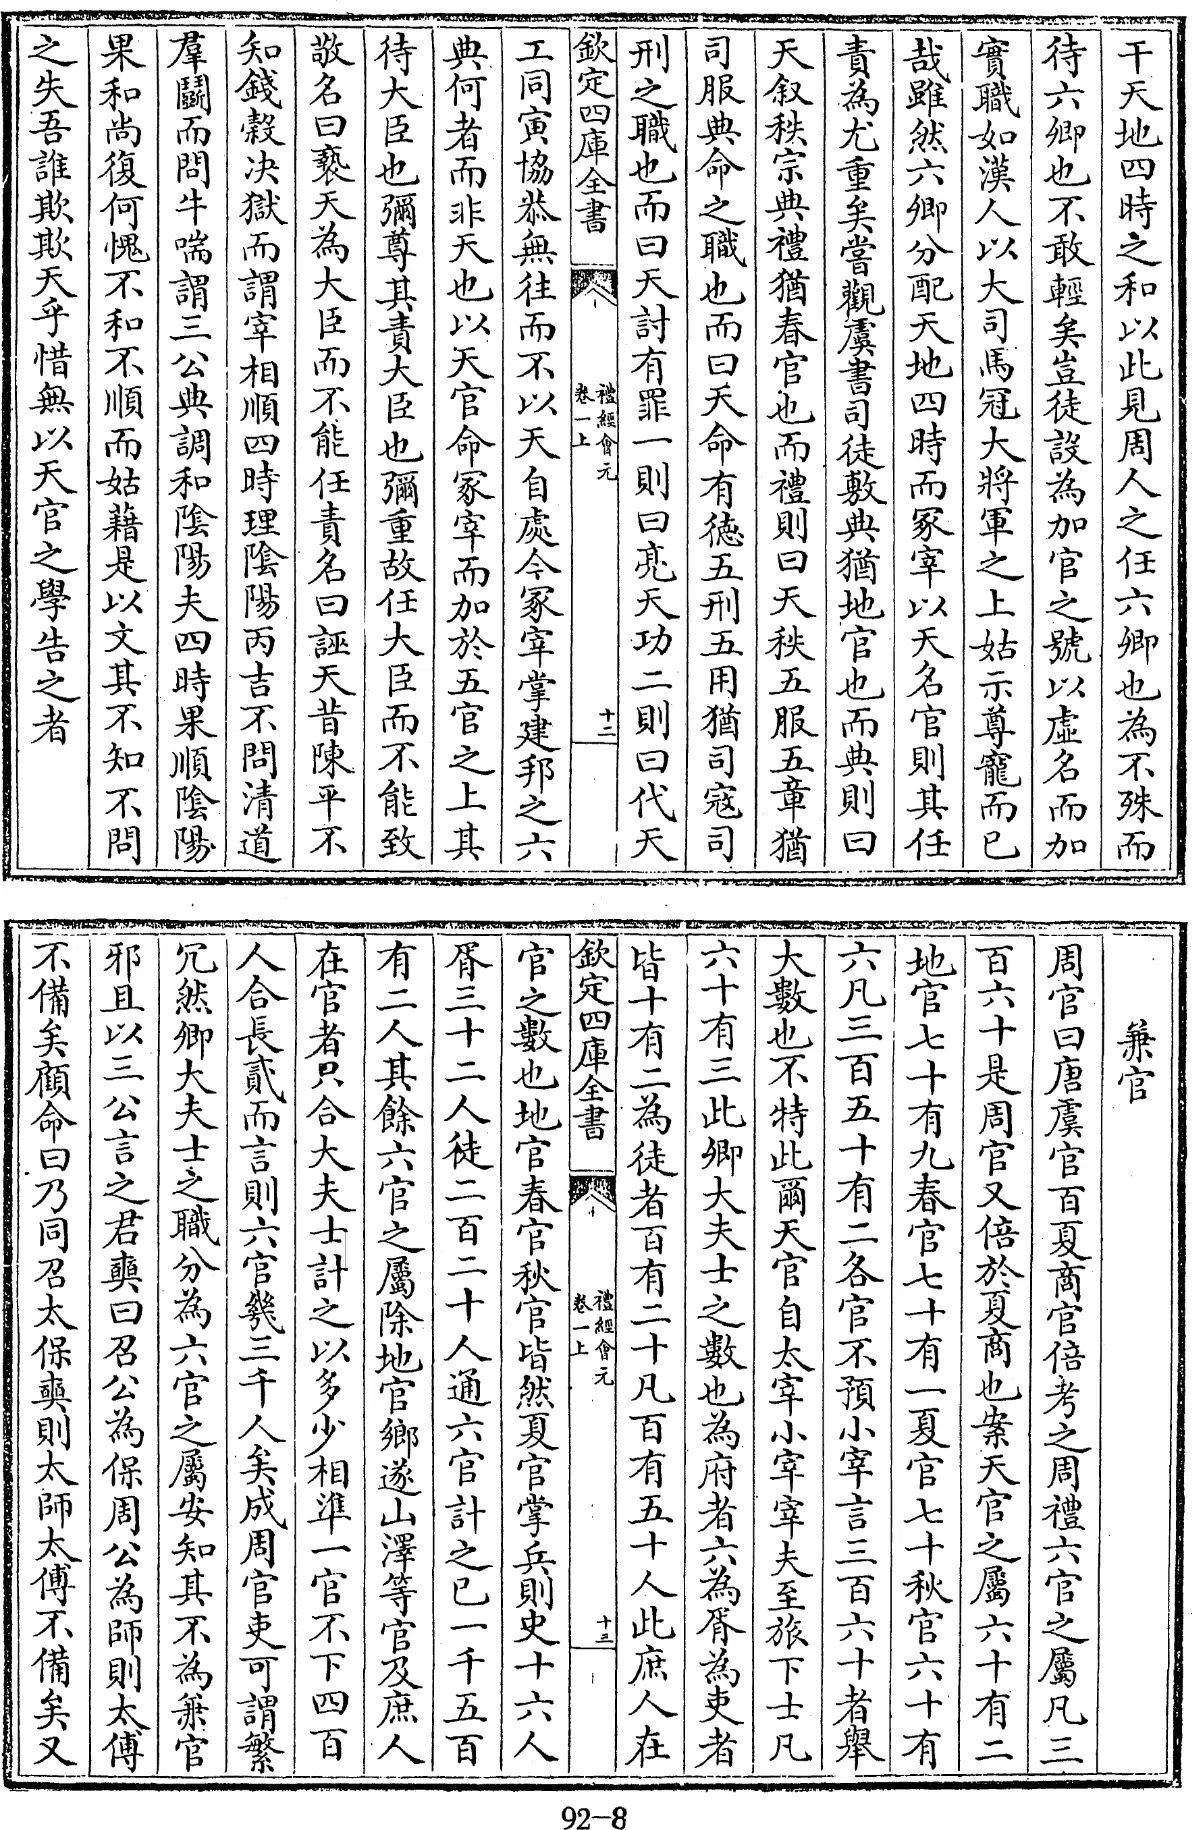 干天地四時之和以此見周人之任六卿也為不殊而
待六卿也不敢輕矣豈徒設為加官之號以虛名而加
實職如漢人以大司馬冠大將軍之上姑示尊寵而已
哉雖然六卿分配天地四時而冢宰以天名官則其任
責為尤重矣嘗觀虞書司徒敷典猶地官也而典則曰
天叙秩宗典禮猶春官也而禮則曰天秩五服五章猶
司服典命之職也而曰天命有德五刑五用猶司寇司
刑之職也而曰天討有罪一則曰亮天功二則曰代天
欽定四庫全書
禮經會元
卷一上
十二
工同寅協恭無往而不以天自處今冢宰掌建邦之六
典何者而非天也以天官命冢宰而加於五官之上其
待大臣也彌尊其責大臣也彌重故任大臣而不能致
敬名曰褻天為大臣而不能任責名曰誣天昔陳平不
知錢穀决獄而謂宰相順四時理陰陽丙吉不問清道
羣鬭而問牛喘謂三公典調和陰陽夫四時果順陰陽
果和尚復何愧不和不順而姑藉是以文其不知不問
之失吾誰欺欺天乎惜無以天官之學告之者
兼官
周官曰唐虞官百夏商官倍考之周禮六官之屬凡三
百六十是周官又倍於夏商也案天官之屬六十有二
地官七十有九春官七十有一夏官七十秋官六十有
六凡三百五十有二各官不預小宰言三百六十者舉
大數也不特此爾天官自太宰小宰宰夫至旅下士凡
六十有三此卿大夫士之數也為府者六為胥為吏者
皆十有二為徒者百有二十凡百有五十人此庶人在
欽定四庫全書
禮經會元
卷一上
十三
官之數也地官春官秋官皆然夏官掌兵則史十六人
胥三十二人徒二百二十人通六官計之已一千五百
有二人其餘六官之屬除地官鄉遂山澤等官及庶人
在官者只合大夫士計之以多少相準一官不下四百
人合長貳而言則六官幾三千人矣成周官吏可謂繁
冗然卿大夫士之職分為六官之屬安知其不為兼官
邪且以三公言之君奭曰召公為保周公為師則太傅
不備矣顧命曰乃同召太保奭則太師太傅不備矣又
92-8